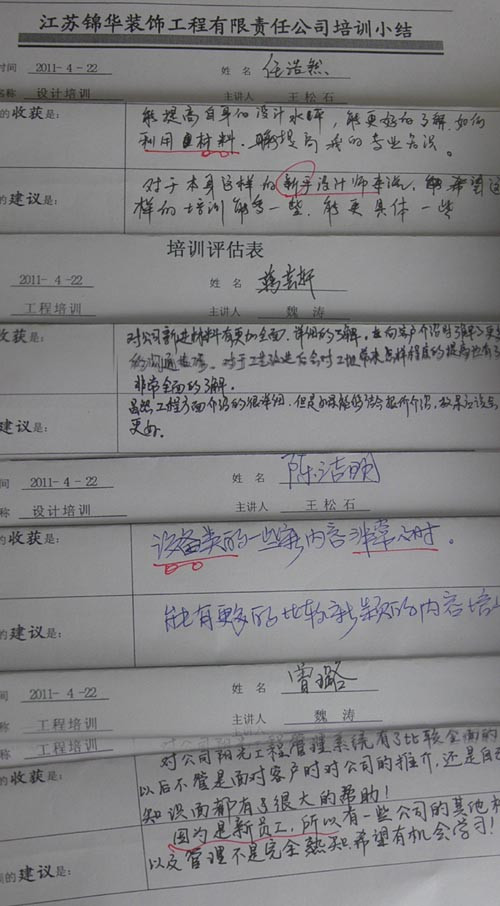 江苏锦华装饰工程有限责任公司培训小结
时间 2011-4-22 姓名 任浩然
名称 设计培训 主讲人 王松石
的收获是: 能提高自身的设计水平,能更好的了解如何
利用 材料. 提高我的专业知识。
的建议是: 对于本身这样的新手设计师来说,能希望这
样的培训能多一些,能更具体一些
培训评估表
2011-4-22 姓名
工程培训 主讲人 魏涛
收获是: 对公司新进材料有更加全面、详细的了解。在向客户介绍时
对于工艺改进后会对工地带来怎样程度的提高也有了
非常全面的了解.
建议是: 虽然工程方面介绍的很详细,但是如果能够结合报价介绍,效果应该会
更好.
间 2011-4-22 姓名 陈洁明
称 设计培训 主讲人 王松石
的收获是: 设备类的一些新内容非常及时。
的建议是: 能有更多的比较新颖的内容培
间 2011-4-22 姓名 曾璐
称 工程培训 主讲人 魏涛
的收获是: 对公司阳光工程管理系统有了比较全面的
以后不管是面对客户时对公司的推介,还是自己
知识面都有了很大的帮助!
因为是新员工,所以有一些公司的其他
的建议是: 以及管理不是完全熟知.希望有机会学习!